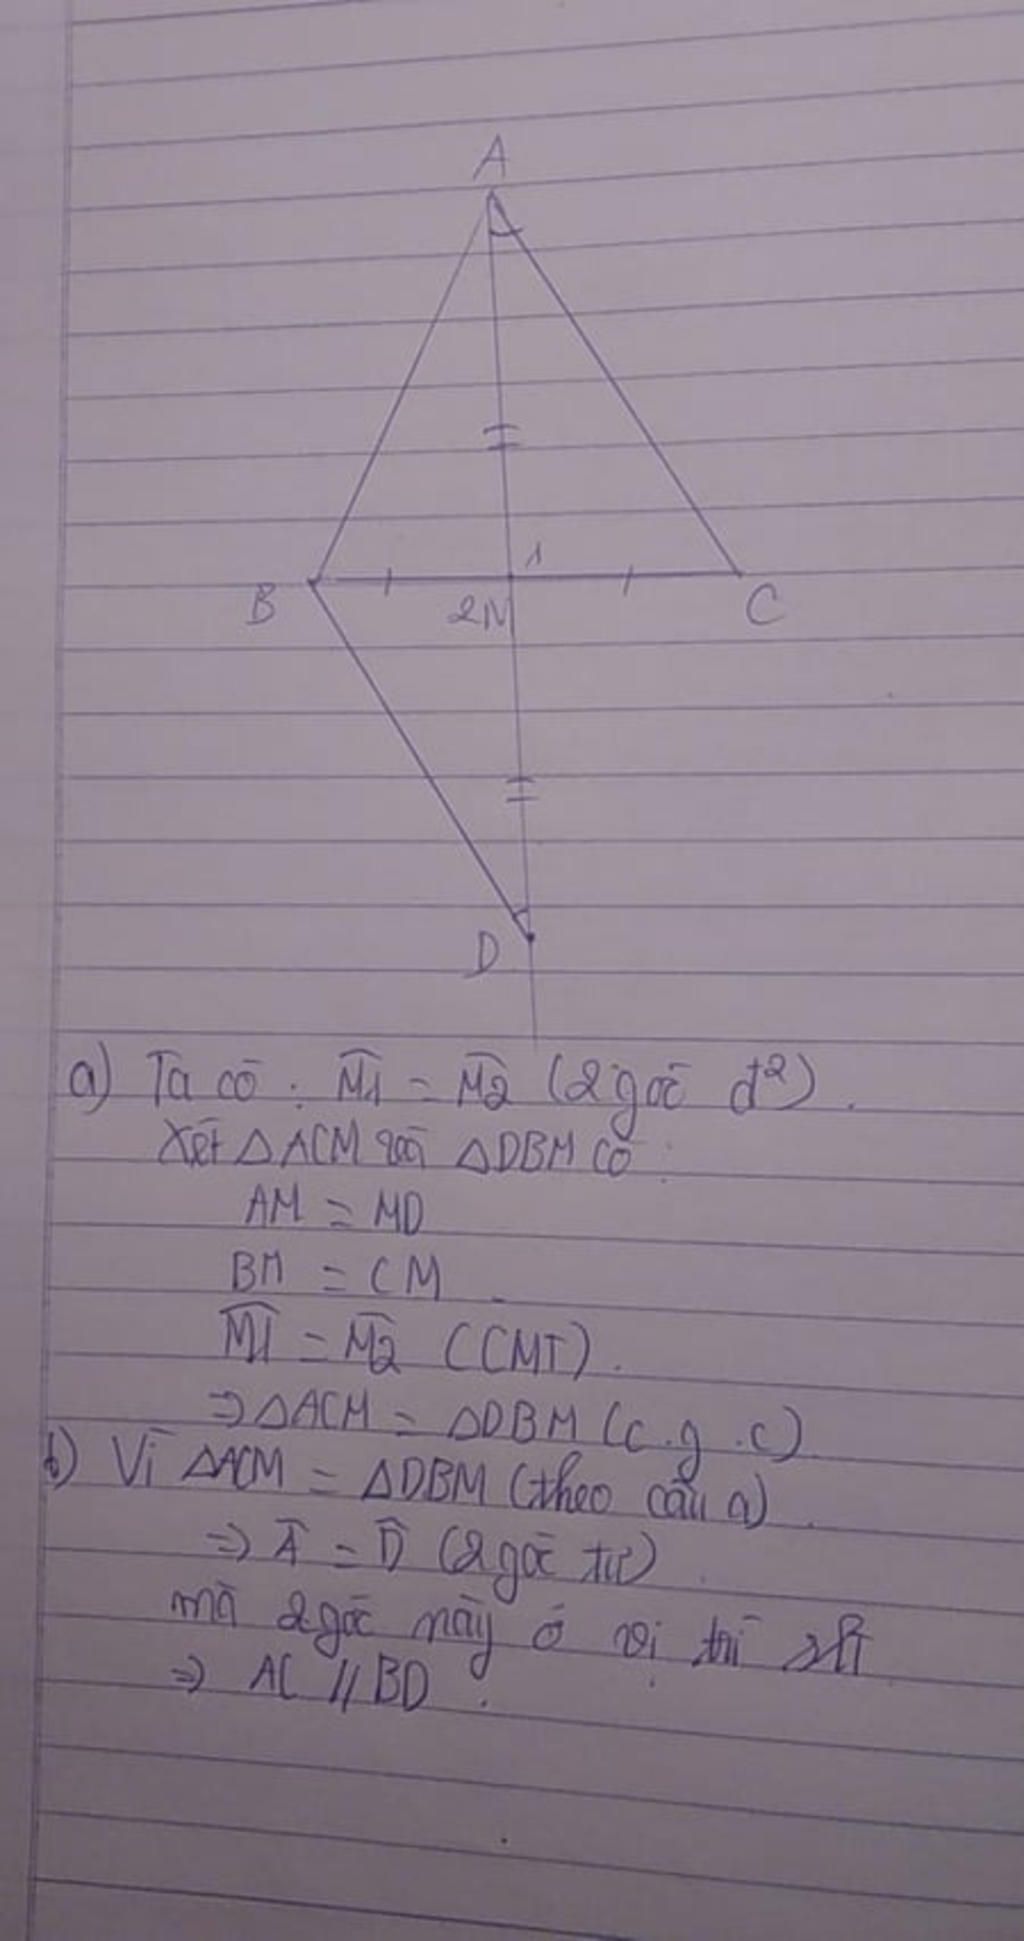 A
1
B
2M
C
D
a) Ta có : M1 = M2 (2 góc đ²).
Xét △ACM và △DBM có :
AM = MD
BM = CM
M1 = M2 (CMT).
⇒ △ACM = △DBM (c.g.c)
b) Vì △ACM = △DBM (theo câu a)
⇒ A = D (2 góc tư)
mà 2 góc này ở vị trí slt
⇒ AC // BD.